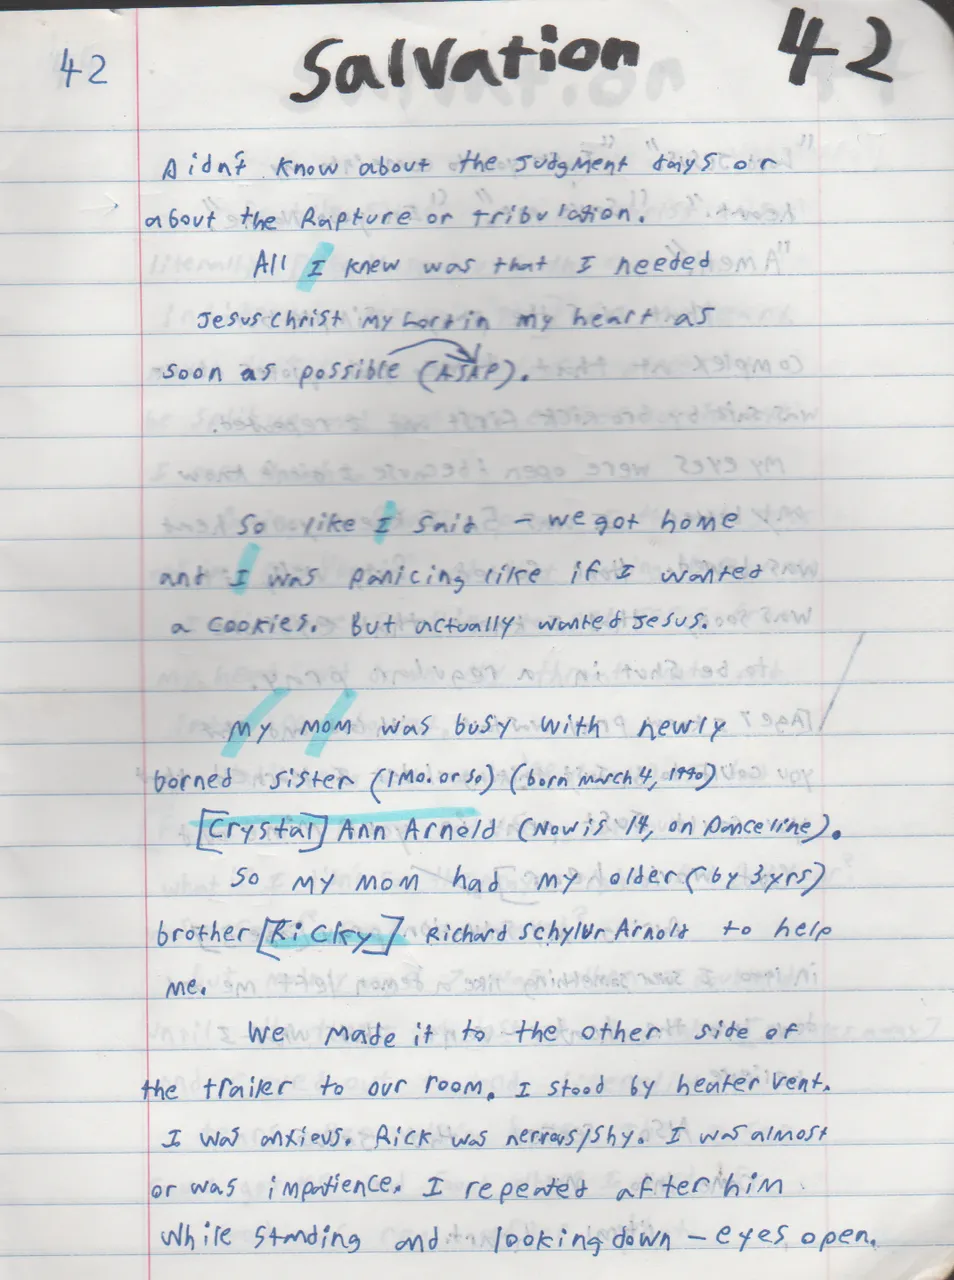 42 Salvation 42
didn't know about the Judgment days or
about the Rapture or tribulation.
All I knew was that I needed
Jesus Christ my Lord in my heart as
soon as possible (ASAP).
So like I said - we got home
and I was panicing like if I wanted
a cookies. But actually wanted Jesus.
My mom was busy with newly
borned sister (1 mo. or so) (born march 4, 1990)
[Crystal] Ann Arnold (Now is 14, on Danceline).
So my mom had my older (by 3 yrs)
brother [Ricky] Richard Schylur Arnold to help
me.
We made it to the other side of
the trailer to our room. I stood by heater vent.
I was anxieus. Rick was nervous/shy. I was almost
or was impatience. I repeated after him
while standing and looking down - eyes open.